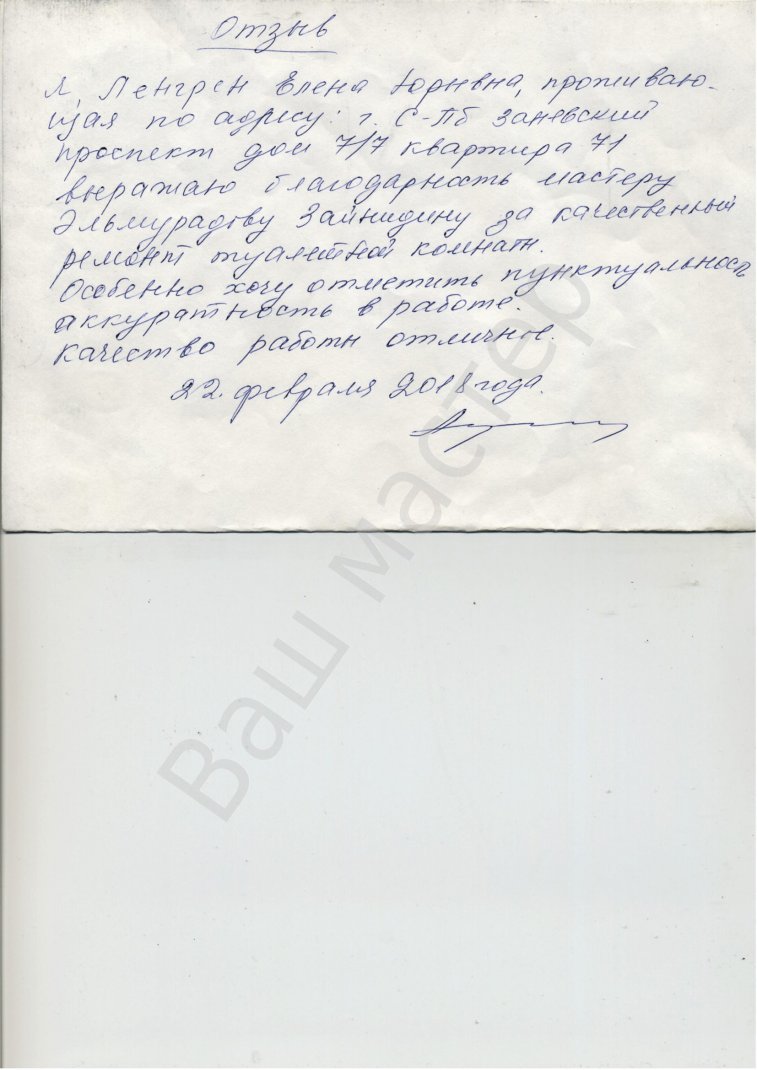 Отзыв
Я, Ленгрен Елена Юрьевна, проживаю-
щая по адресу: г. С-Пб Заневский
проспект дом 7/7 квартира 71
выражаю благодарность мастеру
Эльмурадову Зайнидину за качественный
ремонт туалетной комнаты.
Особенно хочу отметить пунктуальность
аккуратность в работе.
Качество работы отличное.
22. февраля 2018 года.
Ваш мастер